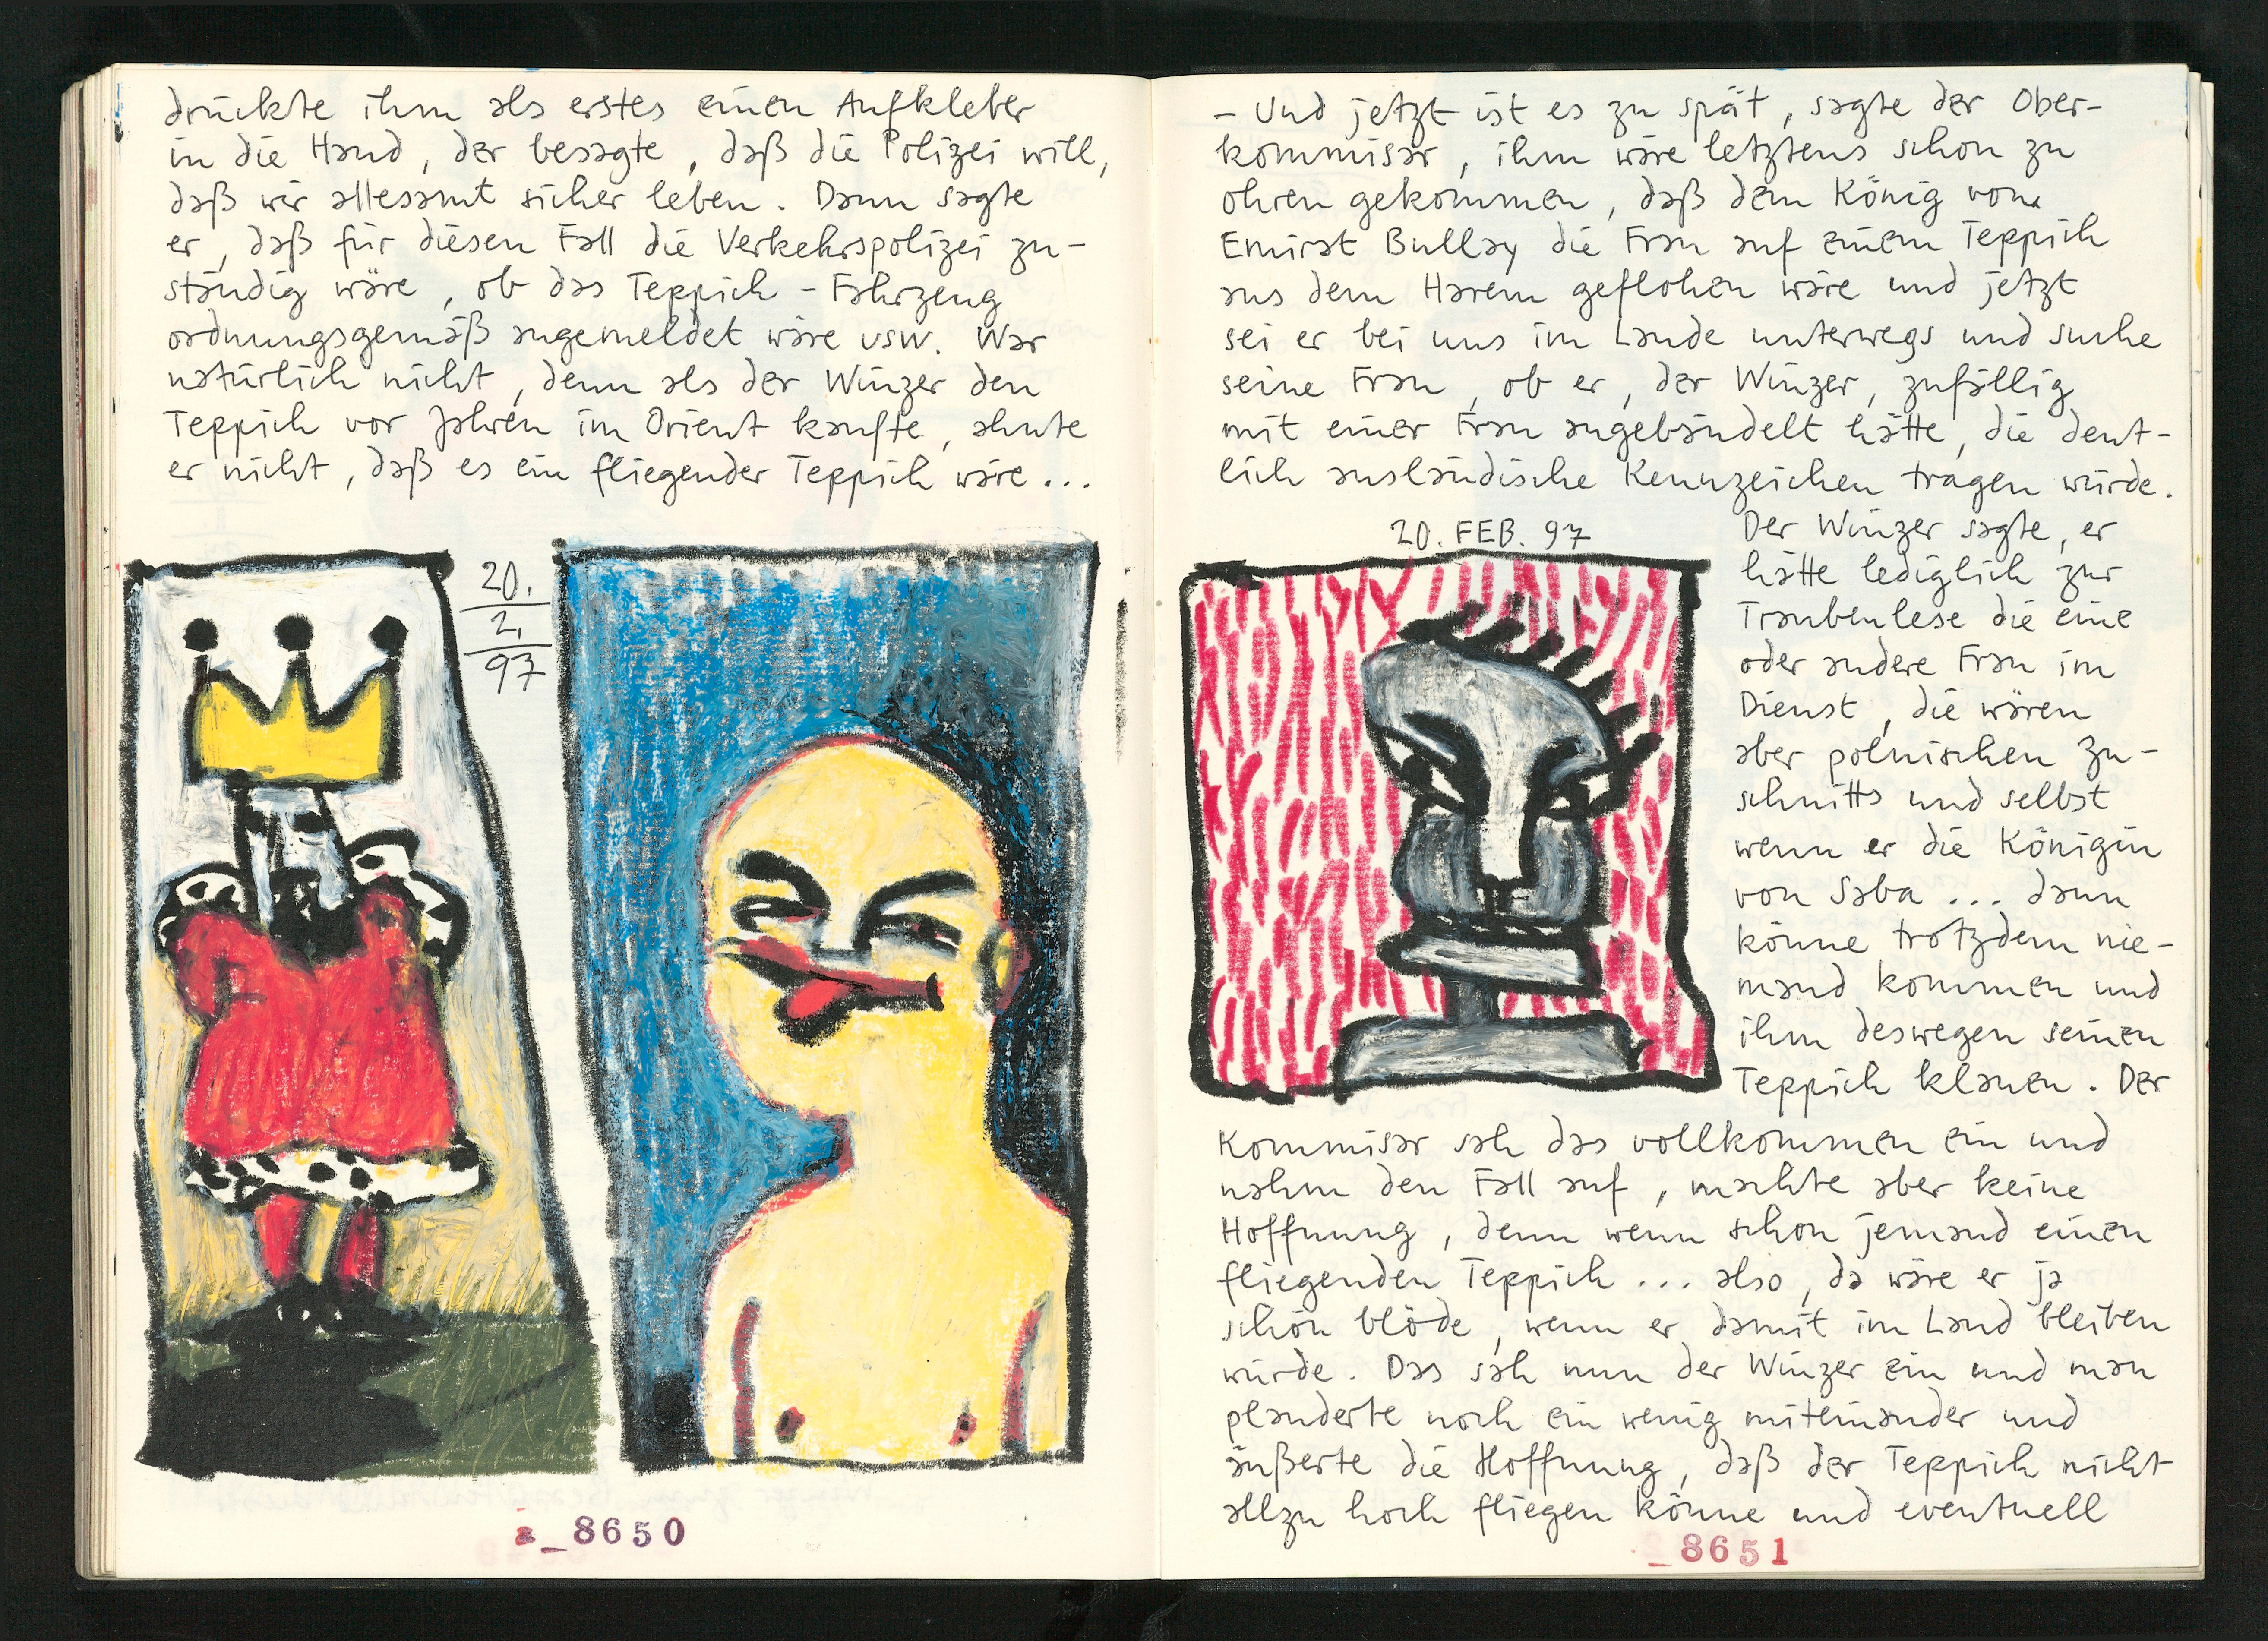 drückte ihm als erstes einen Aufkleber
in die Hand, der besagte, daß die Polizei will,
daß wir allesamt sicher leben. Dann sagte
er, daß für diesen Fall die Verkehrspolizei zu-
ständig wäre, ob das Teppich-Fahrzeug
ordnungsgemäß angemeldet wäre usw. War
natürlich nicht, denn als der Winzer den
Teppich vor Jahren im Orient kaufte, ahnte
er nicht, daß es ein fliegender Teppich wäre...
20.
2.
97
a_8650
- Und jetzt ist es zu spät, sagte der Ober-
kommisar, ihm wäre letztens schon zu
ohren gekommen, daß dem König vom
Emirat Bullay die Frau auf einem Teppich
aus dem Harem geflohen wäre und jetzt
sei er bei uns im Lande unterwegs und suche
seine Frau, ob er, der Winzer, zufällig
mit einer Frau angebändelt hätte, die deut-
lich ausländische Kennzeichen tragen würde.
20. FEB. 97
Der Winzer sagte, er
hätte lediglich zur
Traubenlese die eine
oder andere Frau im
Dienst, die wären
aber polnischen Zu-
schnitts und selbst
wenn er die Königin
von Saba ... dann
könne trotzdem nie-
mand kommen und
ihm deswegen seinen
Teppich klauen. Der
Kommisar sah das vollkommen ein und
nahm den Fall auf, machte aber keine
Hoffnung, denn wenn schon jemand einen
fliegenden Teppich ... also, da wäre er ja
schön blöde, wenn er damit im Land bleiben
würde. Das sah nun der Winzer ein und man
plauderte noch ein wenig miteinander und
äußerte die Hoffnung, daß der Teppich nicht
allzu hoch fliegen könne und eventuell
_8651